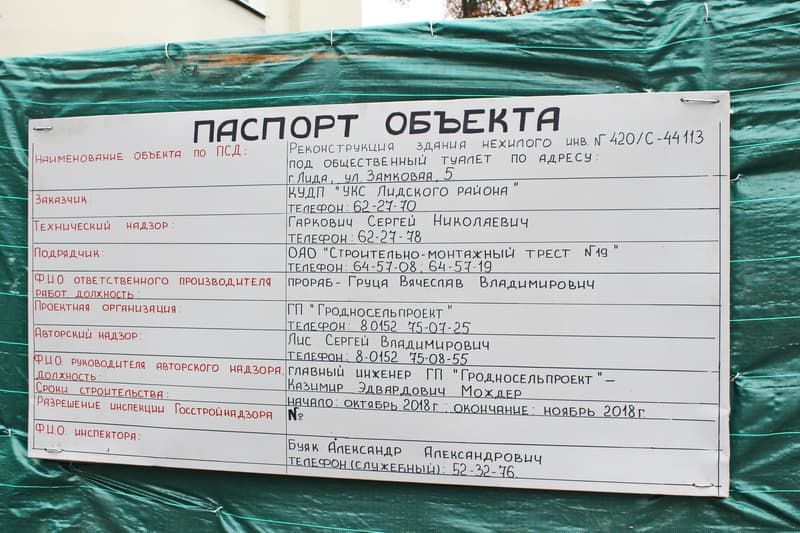 ПАСПОРТ ОБЪЕКТА
НАИМЕНОВАНИЕ ОБЪЕКТА ПО ПСД:
РЕКОНСТРУКЦИЯ ЗДАНИЯ НЕЖИЛОГО ИНВ. № 420/С-44113
ПОД ОБЩЕСТВЕННЫЙ ТУАЛЕТ ПО АДРЕСУ:
г. ЛИДА, ул. ЗАМКОВАЯ, 5
ЗАКАЗЧИК:
КУДП "УКС ЛИДСКОГО РАЙОНА"
ТЕЛЕФОН: 62-27-70
ТЕХНИЧЕСКИЙ НАДЗОР:
ГАРКОВИЧ СЕРГЕЙ НИКОЛАЕВИЧ
ТЕЛЕФОН: 62-27-78
ПОДРЯДЧИК:
ОАО "СТРОИТЕЛЬНО-МОНТАЖНЫЙ ТРЕСТ №19"
ТЕЛЕФОН: 64-57-08; 64-57-19
Ф.И.О ОТВЕТСТВЕННОГО ПРОИЗВОДИТЕЛЯ
РАБОТ, ДОЛЖНОСТЬ
ПРОРАБ- ГРУЦА ВЯЧЕСЛАВ ВЛАДИМИРОВИЧ
ПРОЕКТНАЯ ОРГАНИЗАЦИЯ:
ГП "ГРОДНОСЕЛЬПРОЕКТ"
ТЕЛЕФОН: 8 0152 75-07-25
АВТОРСКИЙ НАДЗОР:
ЛИС СЕРГЕЙ ВЛАДИМИРОВИЧ
ТЕЛЕФОН: 8-0152 75-08-55
Ф.И.О РУКОВОДИТЕЛЯ АВТОРСКОГО НАДЗОРА,
ДОЛЖНОСТЬ:
ГЛАВНЫЙ ИНЖЕНЕР ГП "ГРОДНОСЕЛЬПРОЕКТ"–
КАЗИМИР ЭДВАРДОВИЧ МОЖДЕР
СРОКИ СТРОИТЕЛЬСТВА:
НАЧАЛО: ОКТЯБРЬ 2018 г.; ОКОНЧАНИЕ: НОЯБРЬ 2018 г.
РАЗРЕШЕНИЕ ИНСПЕКЦИИ ГОССТРОЙНАДЗОРА
№
Ф.И.О. ИНСПЕКТОРА:
БУЯК АЛЕКСАНДР АЛЕКСАНДРОВИЧ
ТЕЛЕФОН (СЛУЖЕБНЫЙ): 52-32-76